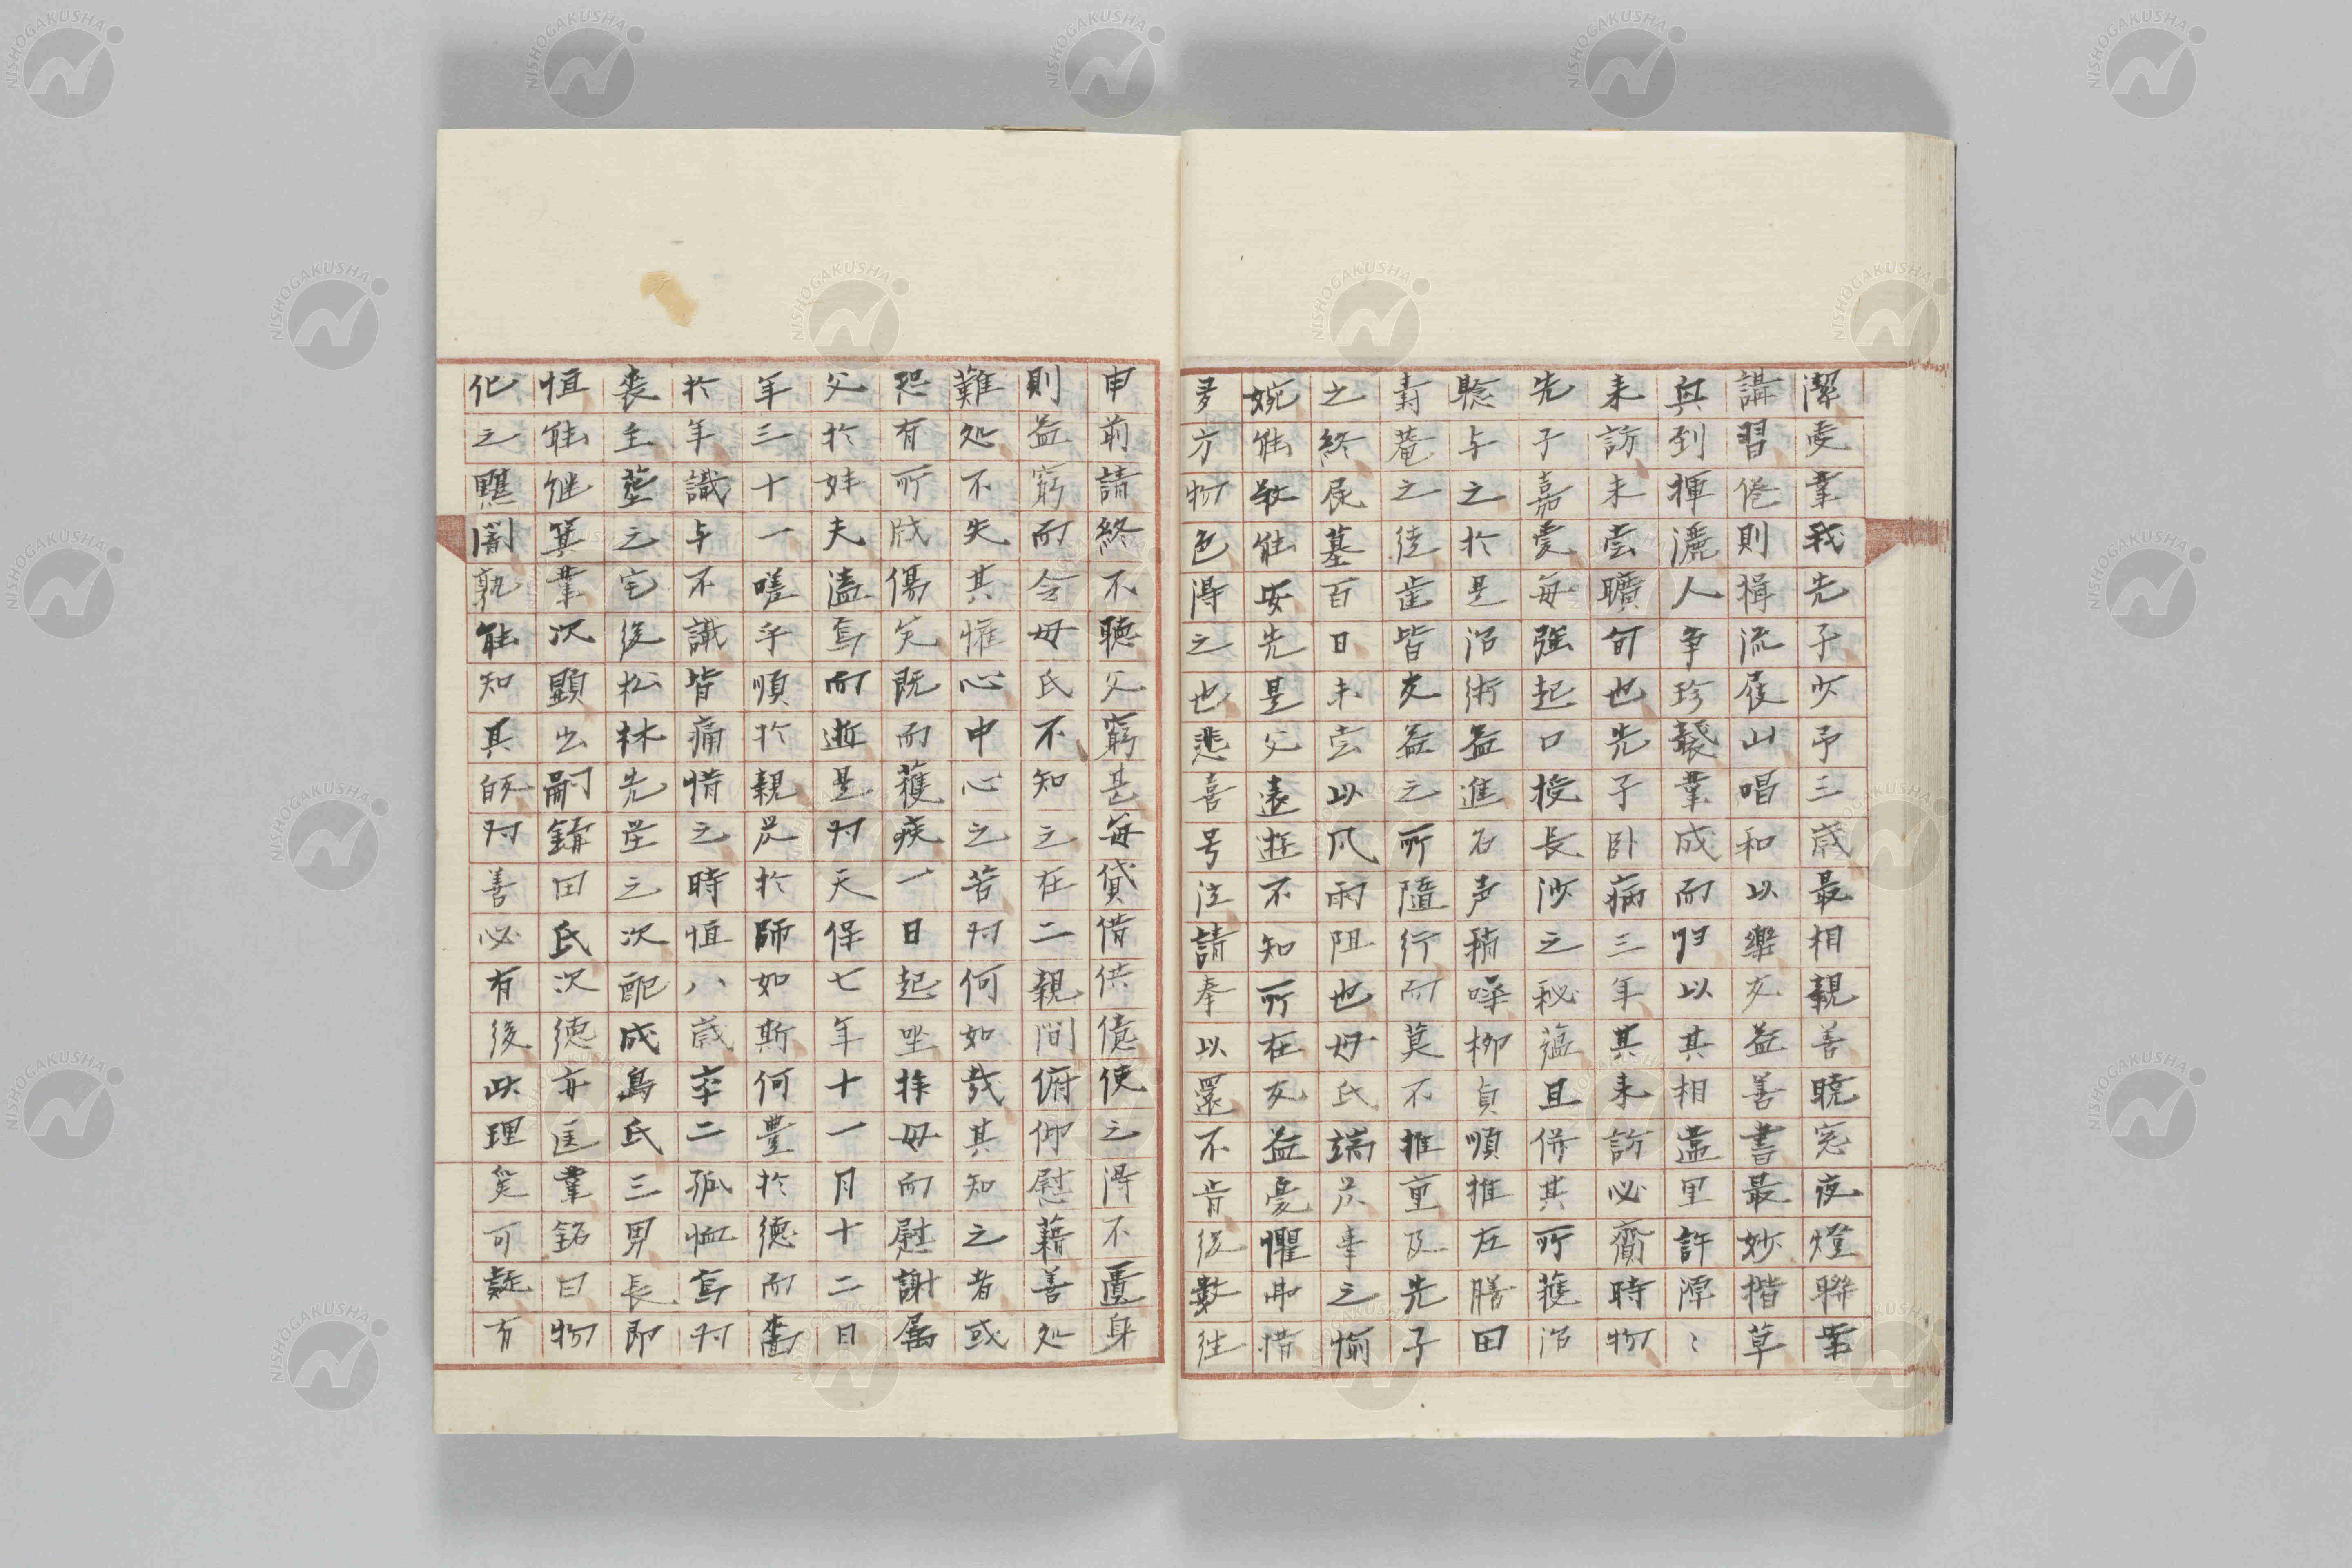 潔受業我先子少予三歳最相親善暁窓夜燈聯業
講習倦則揖流屐山唱和以楽友益善書最妙楷草
興到揮灑人争珍襲業成而归以其相盍里許源〻
来訪未嘗曠旬也先子卧病三年其来訪必齎時物
先子嘉愛毎强起口授長沙之秘蘊且併其所獲治
驗与之於是治術益進名声稍噪柳貞順推左膳田
壽菴之徒歯皆友益之所隨行而莫不推重及先子
之終展墓百日未嘗以风雨阻也母氏端
婉能敬能安先是父遠遊不知所在友益憂懼
多方物色得之也悲喜号泣請奉以還不肯従數往
申前請終不聴父窮甚毎貸借供億使之得不置身
則益窮而令母氏不知之在二親间俯仰慰藉善処
難処不失其懽心中心之苦对何如哉其知之者或
恐有所戕傷矣既而獲疾一日起坐拝母而慰謝属
父於妹夫溘焉而逝是时天保七年十一月十二日
年三十一嗟乎順於親於師如斯何豊於徳而
於年識与不識皆痛惜之時恒八歳幸二孤恤焉对
喪主葬之宅後松林先茔之次配成島氏三男長即
恒能継箕業次顕出嗣鎊田氏次徳亦匡業銘曰物
化之黶闇孰能知其的对善必有後此理奚可疑有